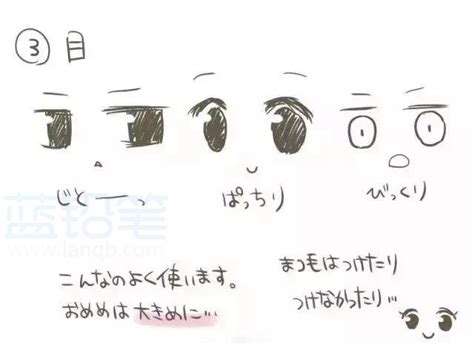 ③ 目
じとーっ ぱっちり びっくり
蓝铅笔
www.lanqb.com
こんなのよく使います。
おめめは大きめに…
まつ毛はつけたり
つけなかったり…